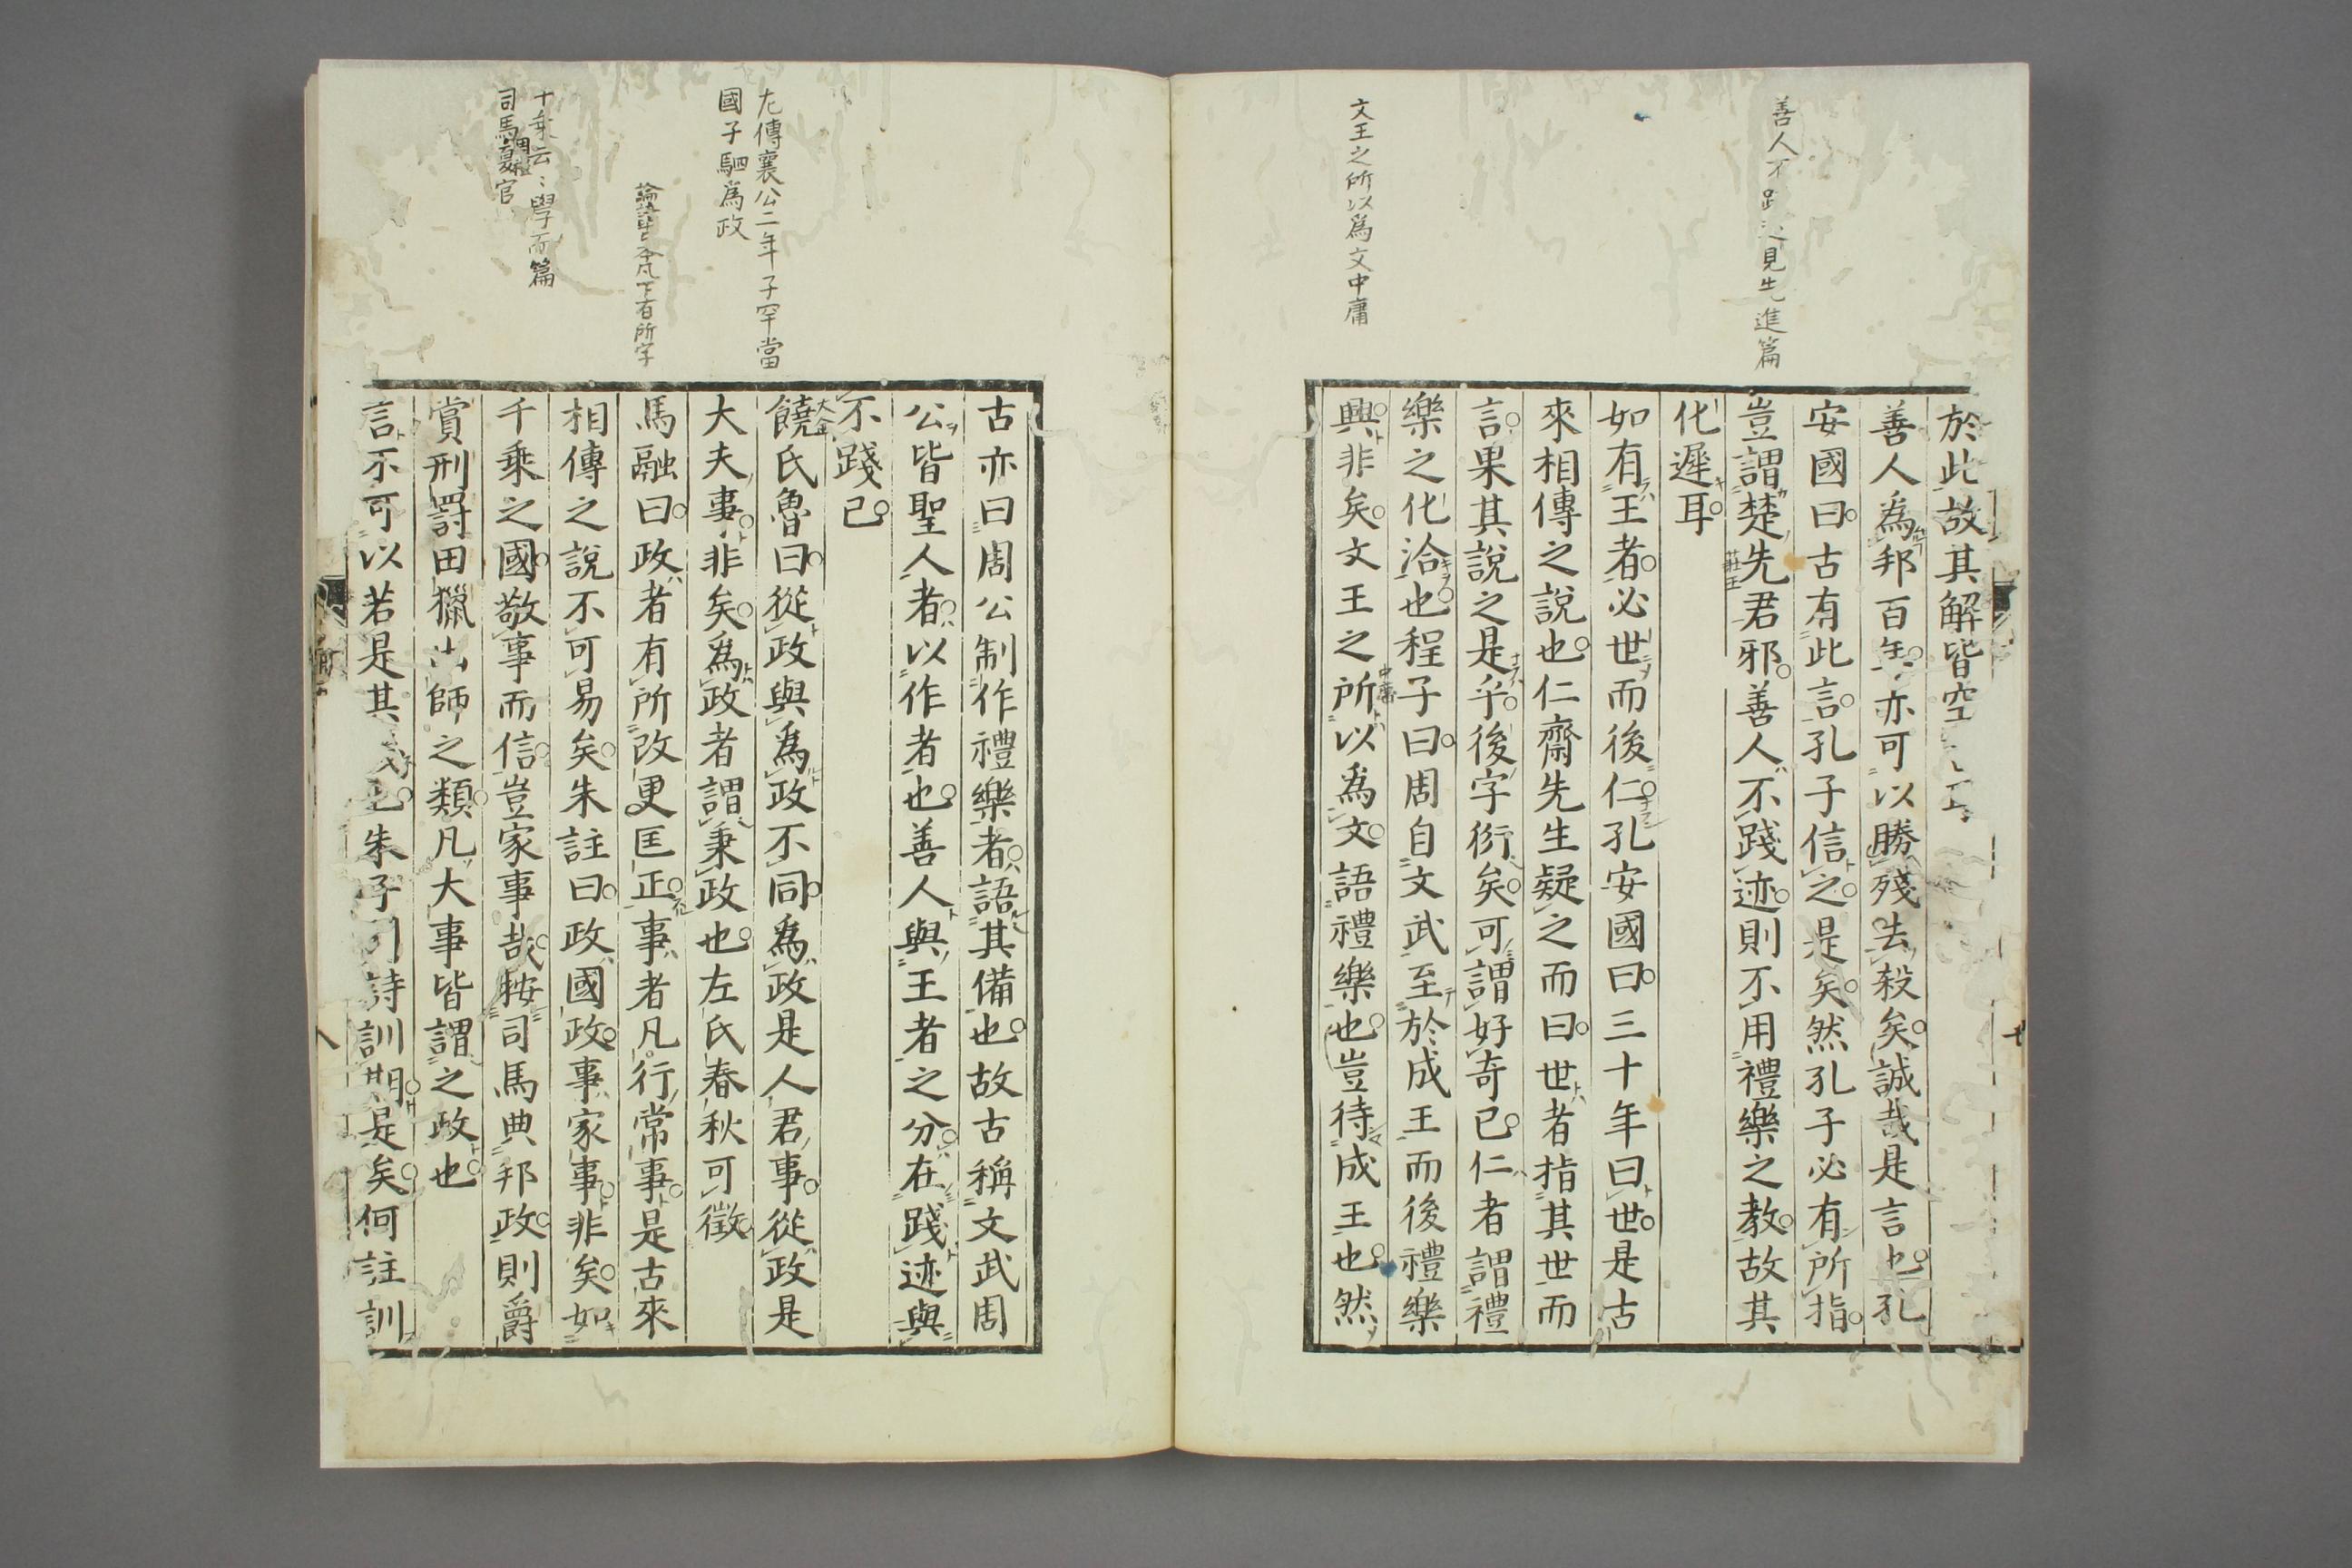 善人不踐迹見先進篇
文王之所以爲文中庸
於此故其解皆空
善人爲邦百年亦可以勝殘去殺矣誠哉是言也孔
安國曰古有此言孔子信之是矣然孔子必有所指
豈謂楚先君邪善人不踐迹則不用禮樂之教故其
莊王
化遲耳
如有王者必世而後仁孔安國曰三十年曰世是古
來相傳之說也仁齋先生疑之而曰世者指其世而
言果其說之是乎後字衍矣可謂好奇已仁者謂禮
樂之化洽也程子曰周自文武至於成王而後禮樂
興非矣文王之所以爲文語禮樂也豈待成王也然
中庸
左傳襄公二年子罕當
國子駟爲政
論語古本凡下有所字
千乘云〻學而篇
司馬夏官
周禮
古亦曰周公制作禮樂者語其備也故古稱文武周
公皆聖人者以作者也善人與王者之分在踐迹與
不踐已
饒氏魯曰從政與爲政不同爲政是人君事從政是
大全
大夫事非矣爲政者謂秉政也左氏春秋可徵
馬融曰政者有所改更匡正事者凡行常事是古來
相傳之說不可易矣朱註曰政國政事家事非矣如
千乘之國敬事而信豈家事哉按司馬典邦政則爵
賞刑罰田獵出師之類凡大事皆謂之政也
言不可以若是其幾也朱子引詩訓期是矣何註訓